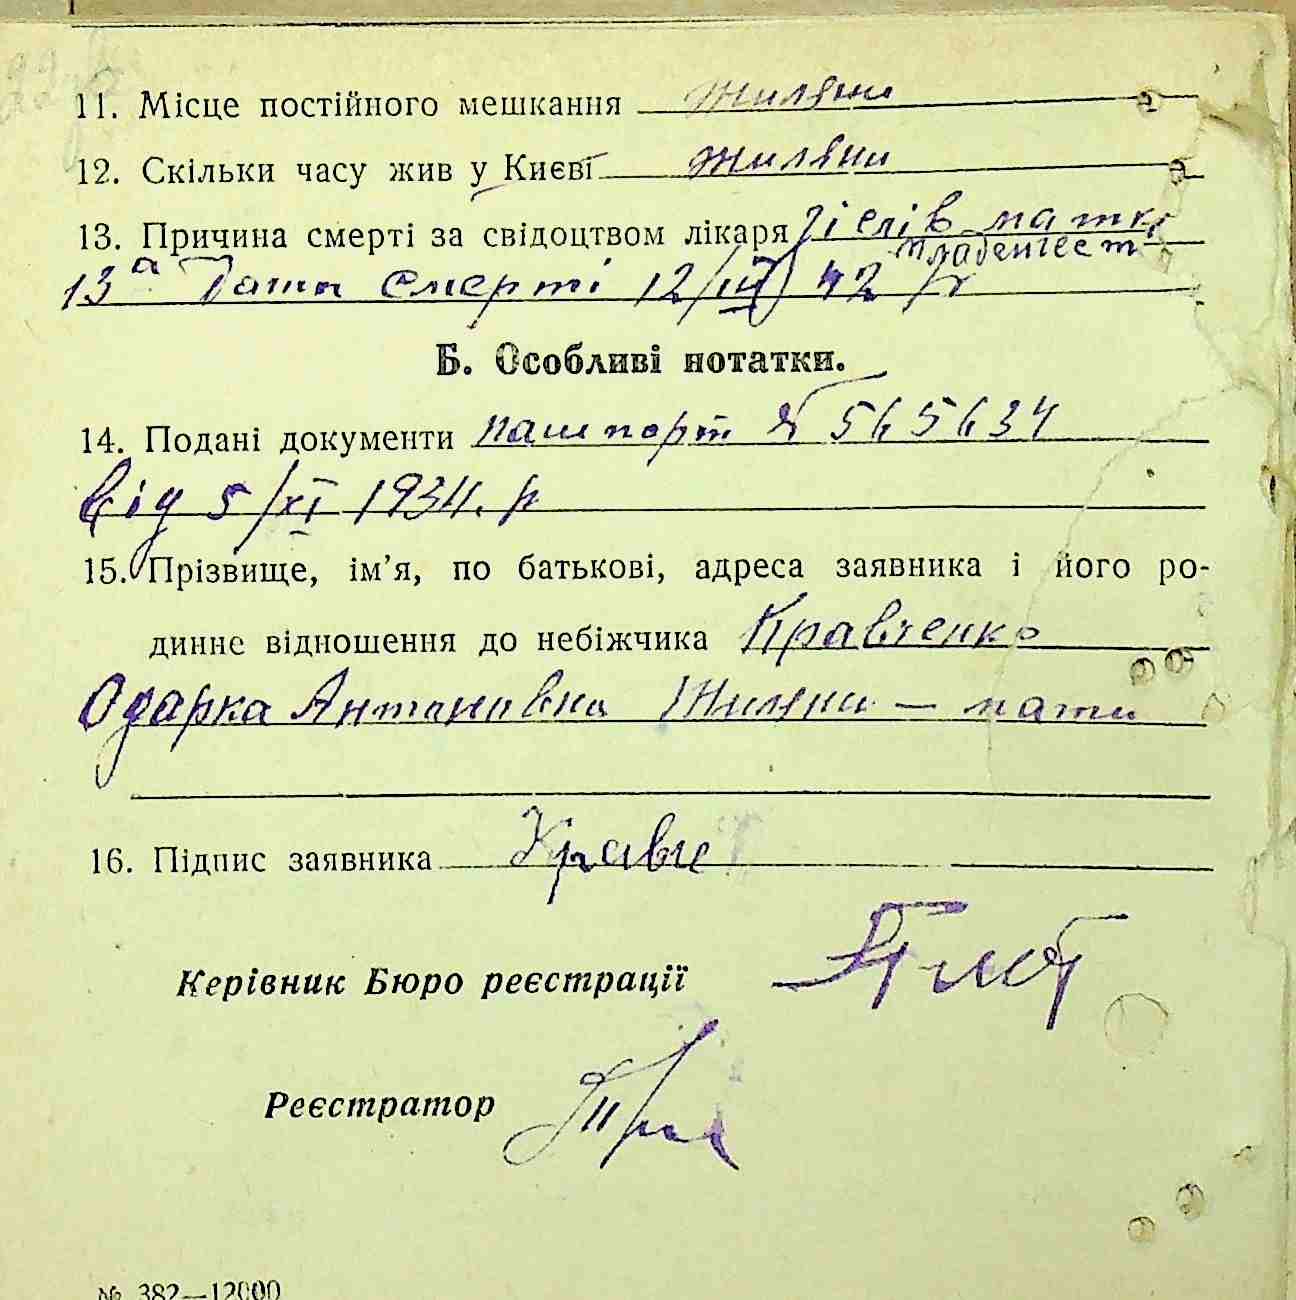 11. Місце постійного мешкання Жиляни
12. Скільки часу жив у Києві Жиляни
13. Причина смерті за свідоцтвом лікаря
13а Дата смерті 12/III 42 р
Б. Особливі нотатки.
14. Подані документи пашпорт № 565634
від 5/XI 1934 р
15. Прізвище, ім’я, по батькові, адреса заявника і його ро-
динне відношення до небіжчика Кравченко
Одарка Антоновна Жиляни — мати
16. Підпис заявника Кравче
Керівник Бюро реєстрації
Реєстратор
№ 382—12000